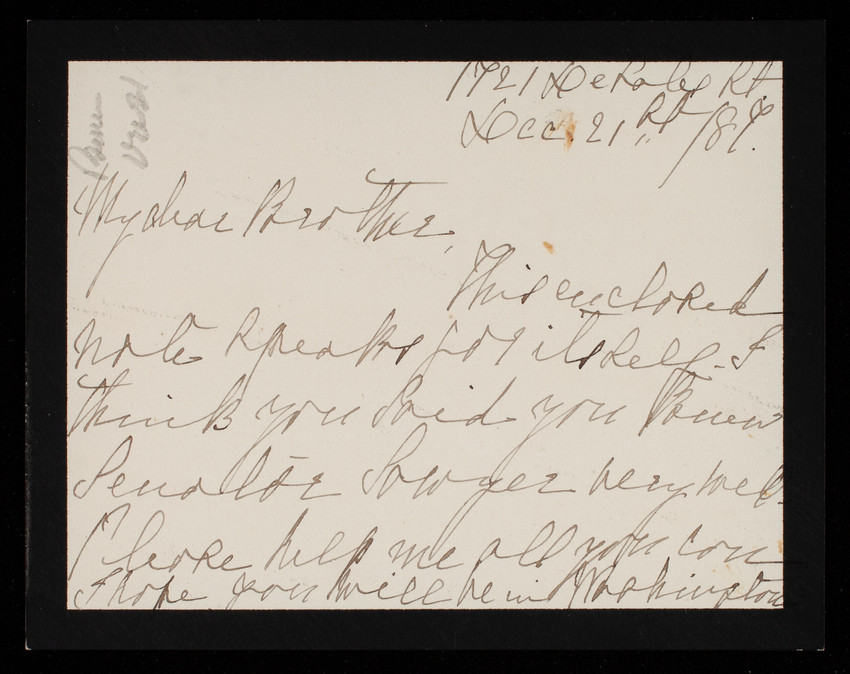 1721 De Sales St
Dec. 21st /89.
My dear Brother,
This enclosed
note speaks for itself. I
think you said you knew
Senator Sawyer very well.
Please help me all you can
I hope you will be in Washington